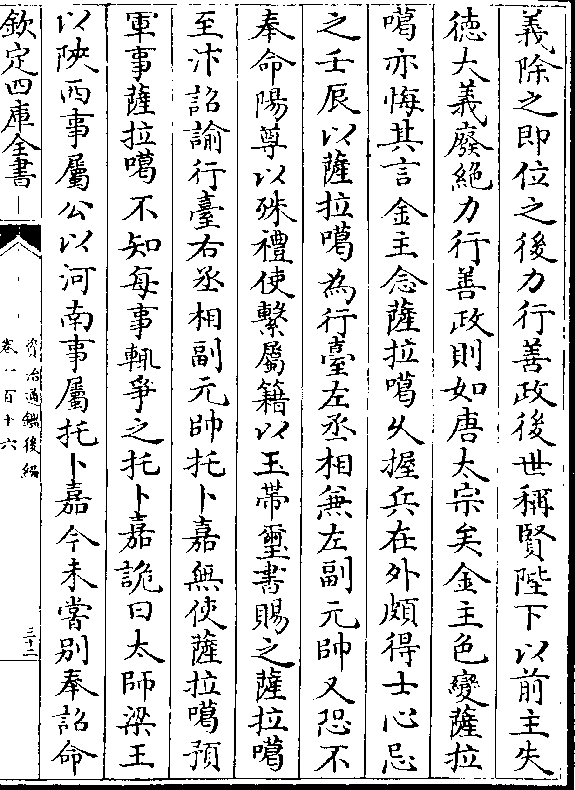 義除之即位之後力行善政後世稱賢陛下以前主失
徳大義廢絶力行善政則如唐太宗矣金主色變薩拉
噶亦悔其言金主念薩拉噶久握兵在外頗得士心忌
之壬辰以薩拉噶為行臺左丞相兼左副元帥又恐不
奉命陽尊以殊禮使繫屬籍以玉帶璽書賜之薩拉噶
至汴詔諭行臺右丞相副元帥托卜嘉無使薩拉噶預
軍事薩拉噶不知每事輒爭之托卜嘉詭曰太師梁王
以陜西事屬公以河南事屬托卜嘉今未嘗别奉詔命
欽定四庫全書
資治通鑑後編
卷一百十六
三十二